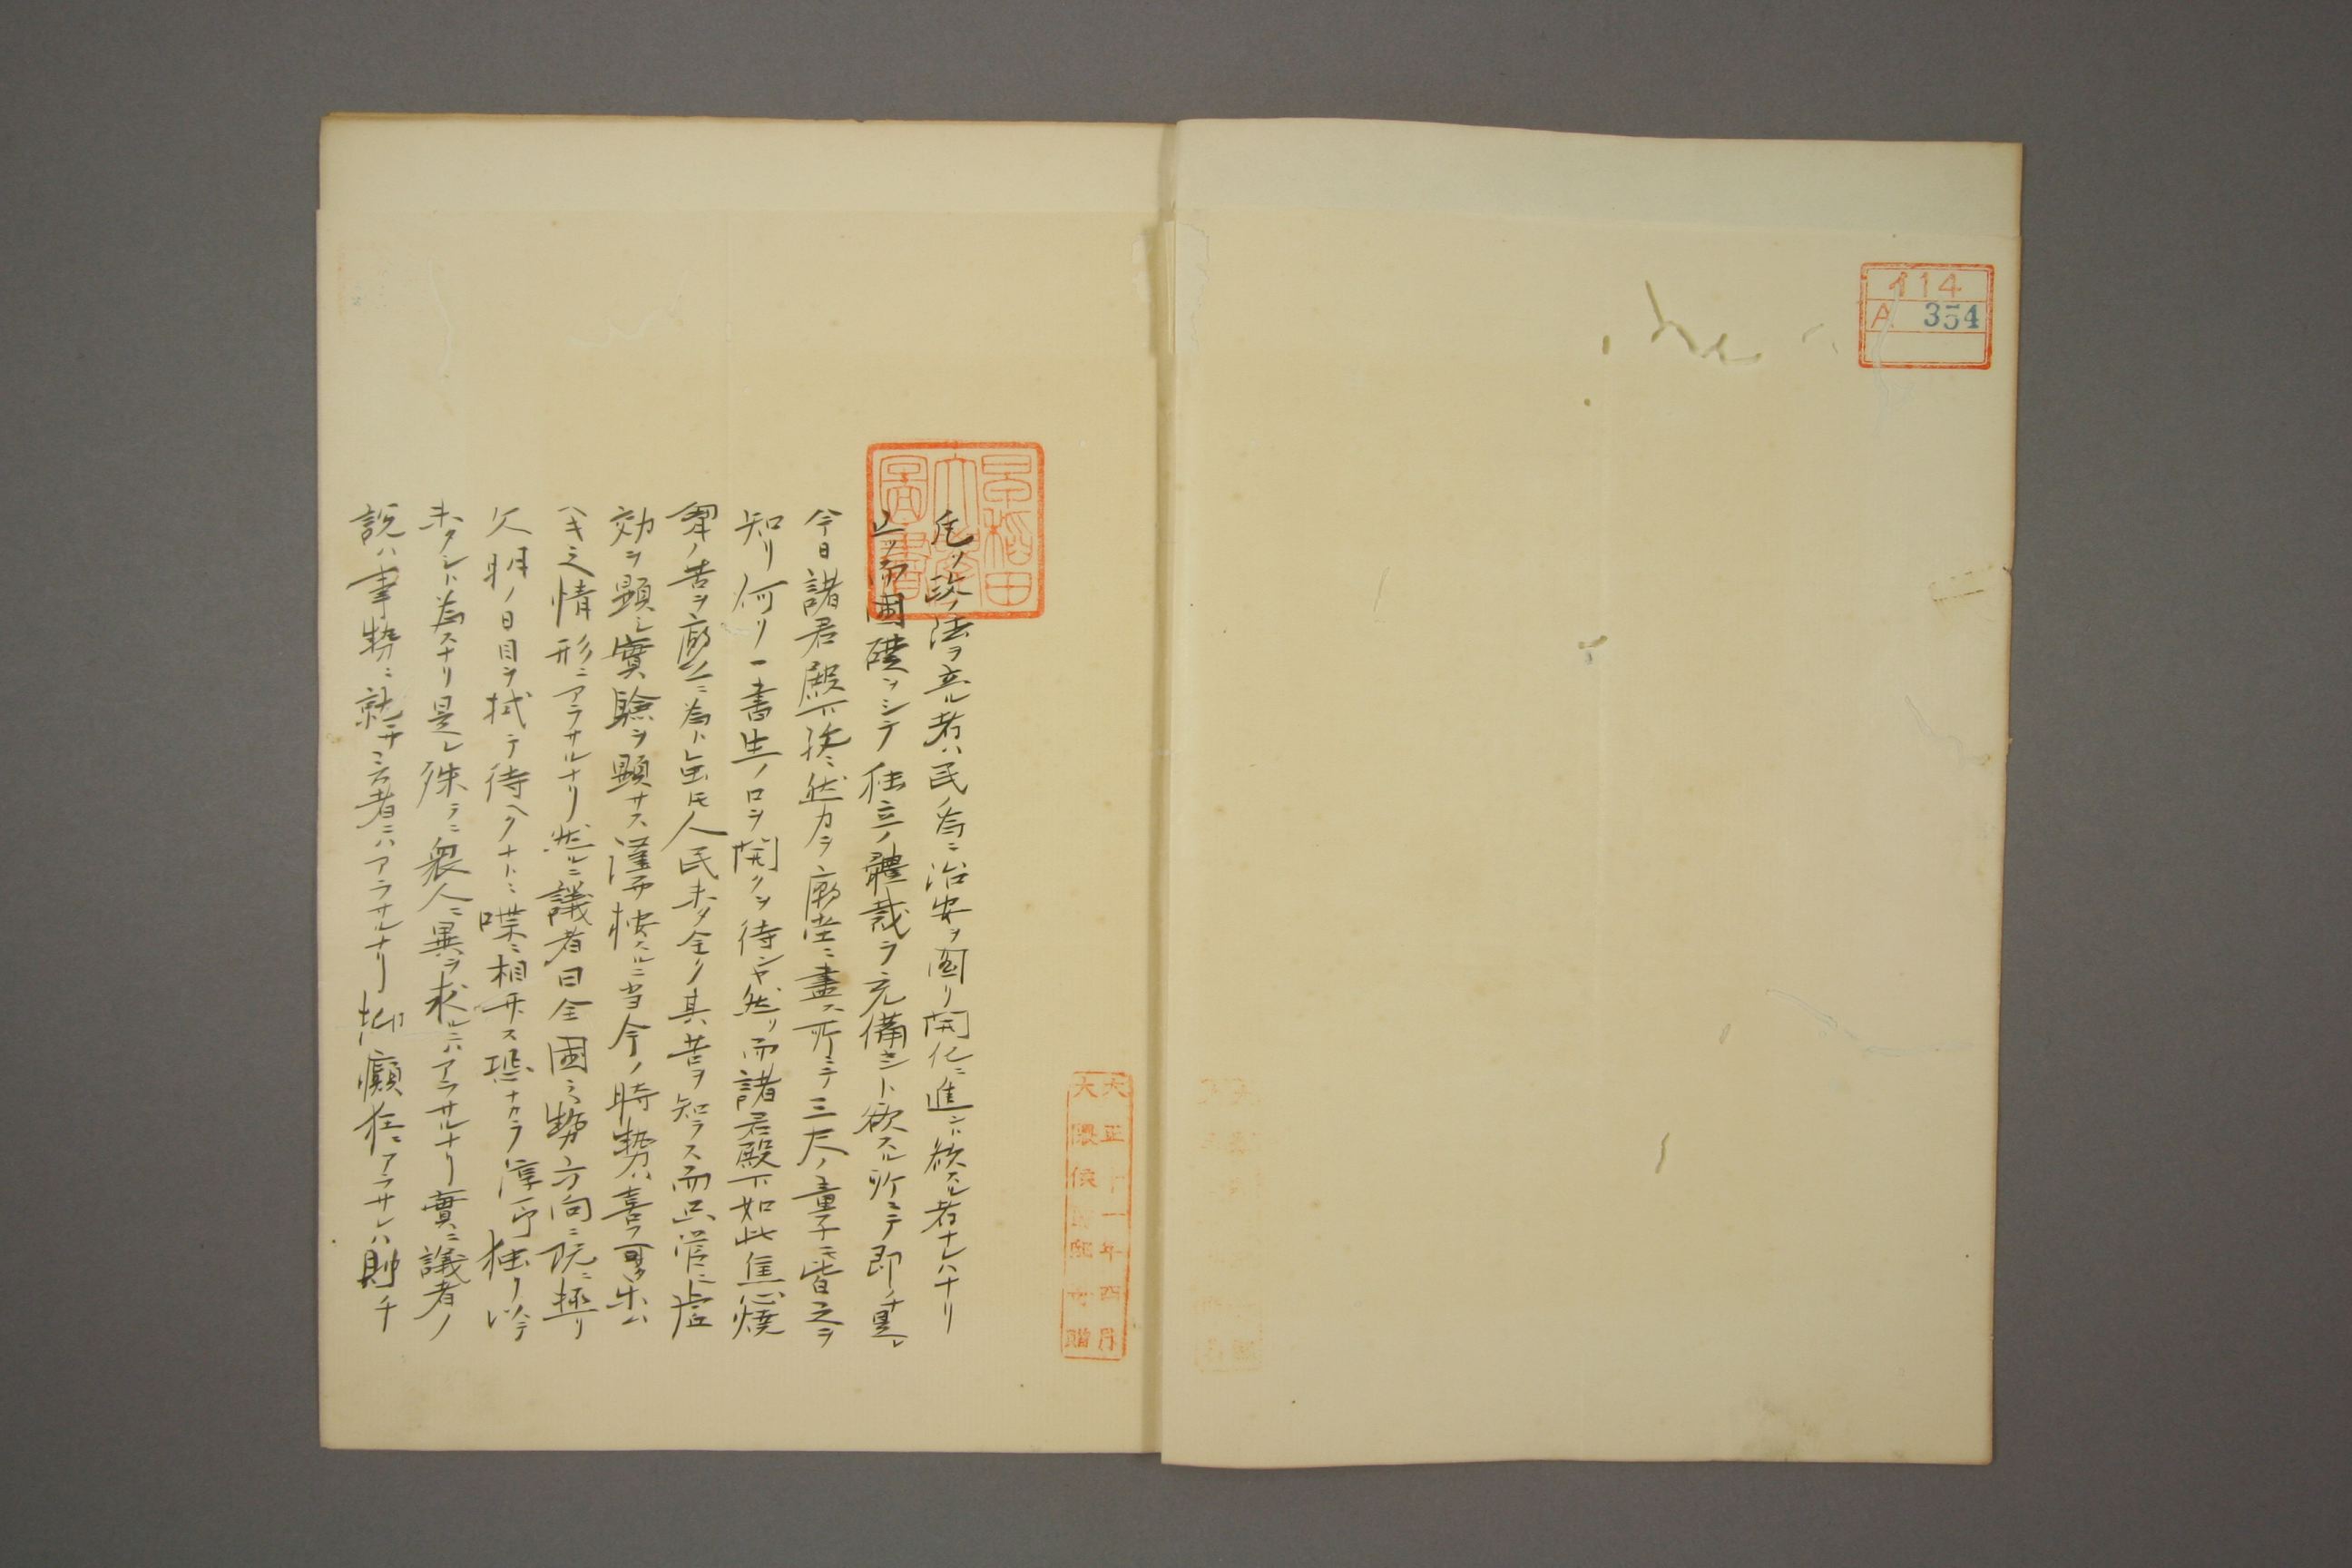 114
A 354
早稲田
大學
圖書
大正十一年四月
大隈侯爵家寄贈
凡ソ政ノ法ヲ立ル者ハ民ノ為ニ治安ヲ圖リ開化ニ進ント欲スル者ナレハナリ
國礎ヲシテ独立ノ體裁ヲ充備セント欲スル所ニテ即チ是レ
今日諸君殿下孜々然カラ廟堂ニ盡ス所ニテ三尺ノ童子モ皆之ヲ
知リ何ソ一書生ノ口ヲ開クヲ待ンヤ然リ而諸君殿下如此焦心焼
慮ノ苦ヲ廟堂ニ為ト虽氏人民未タ全ク其苦ヲ知ラス而只管ニ虚
効ヲ顕シ實驗ヲ顕サス謹而按スルニ当今ノ時勢ハ喜フ可ク楽ム
ヘキ之情形ニアラサルナリ然ルニ議者曰全国之勢方向ニ既ニ極リ
文明ノ日目ヲ拭テ待ヘクナトヽ喋々相弄ス 独リ以テ
未タシト為スナリ是レ殊ラニ衆人ニ異ヲ求ルニハアラサルナリ實ニ議者ノ
説ハ事勢ニ就サニ云者ニハアラサルナリ抑癲狂ニアラサレハ則チ